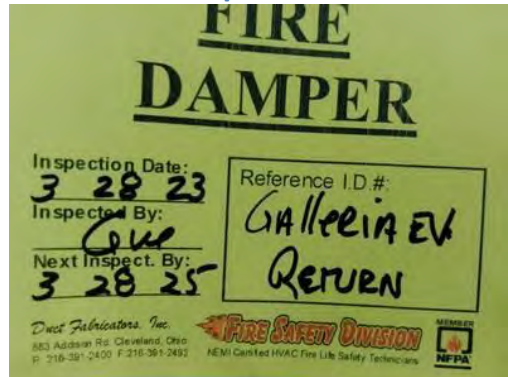 FIRE
DAMPER
Inspection Date:
3 28 23
Inspected By:
Next Inspect. By:
3 28 25
Reference I.D.#:
GAlleriA EV.
RETURN
Duct Fabricators, Inc.
883 Addison Rd. Cleveland, Ohio
P. 216-391-2400 F. 216-391-2492
FIRE SAFETY DIVISION
NEMI Certified HVAC Fire Life Safety Technicians
MEMBER
NFPA